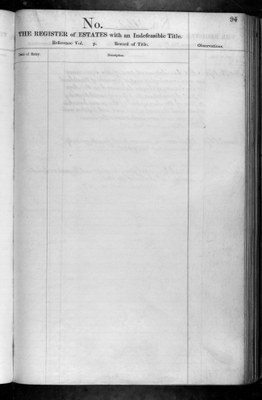 94
No.
THE REGISTER of ESTATES with an Indefeasible Title.
Reference: Vol. p: Record of Title.
Observations
Date of Entry.
Description.